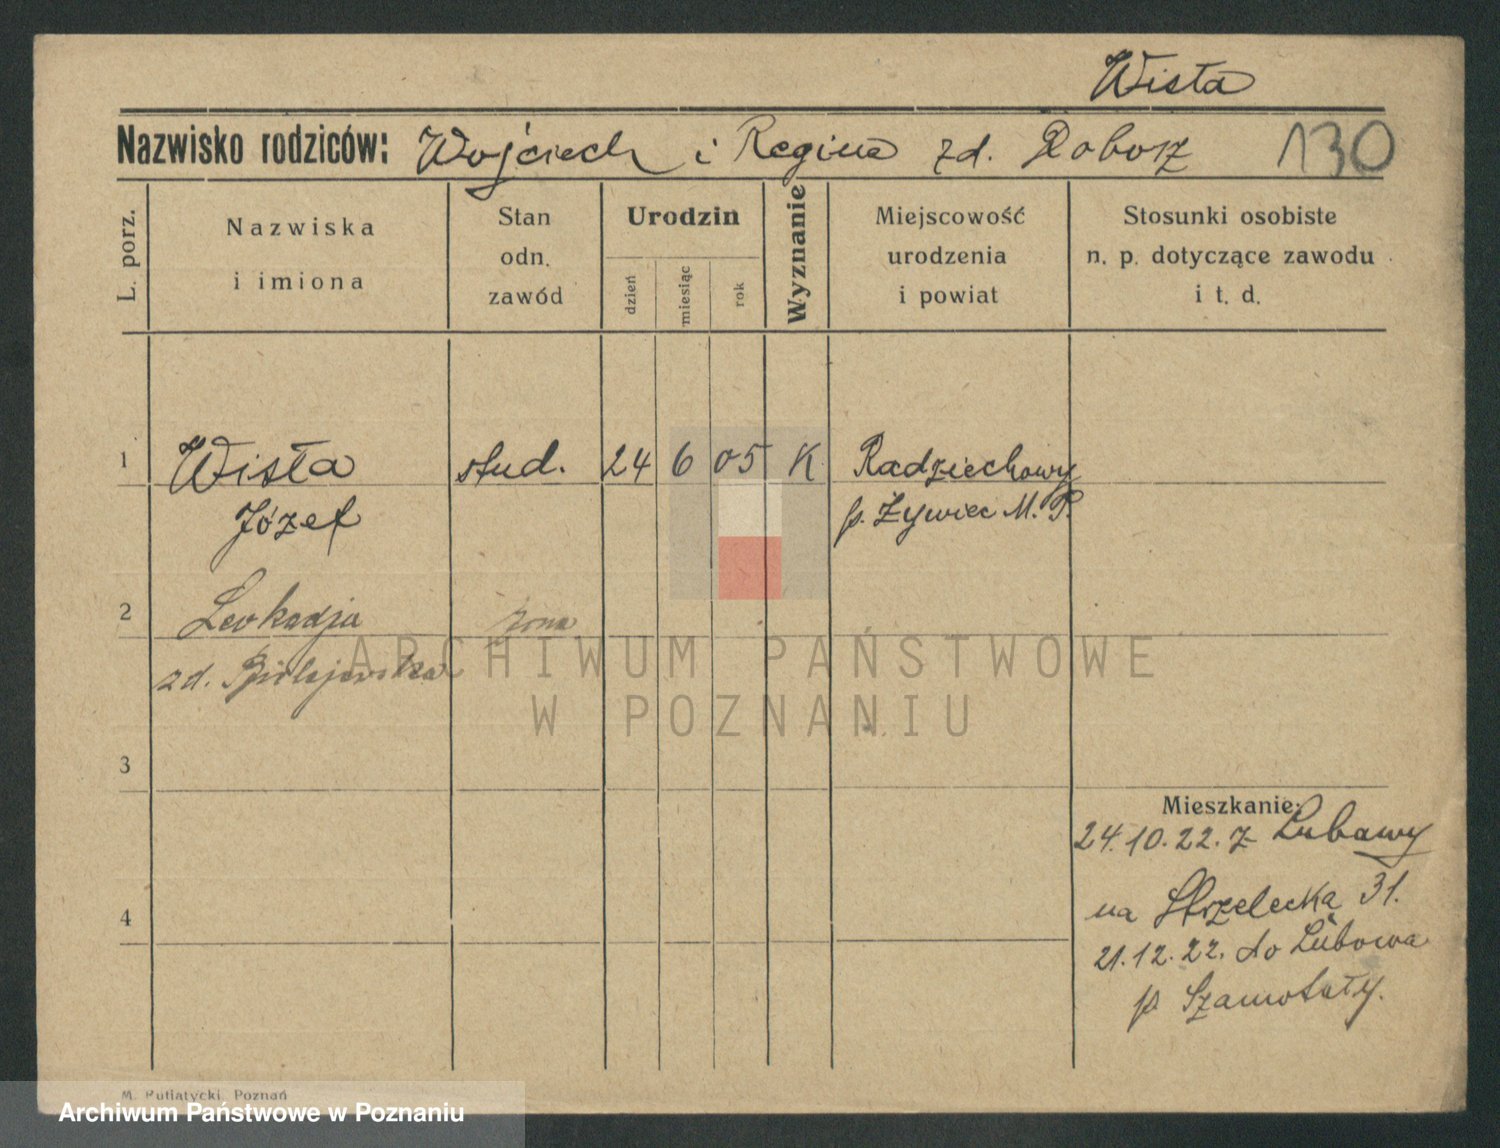 Wisła
Nazwisko rodziców: Wojciech i Regina zd. Dobosz 130
L. porz.
Nazwiska
i imiona
Stan
odn.
zawód
Urodzin
dzień
miesiąc
rok
Wyznanie
Miejscowość
urodzenia
i powiat
Stosunki osobiste
n. p. dotyczące zawodu
i t. d.
1 Wisła stud. 24 6 05 K Radziechowy
Józef p. Żywiec M. P.
2 Leokadja żona
zd.
3
Mieszkanie:
24.10.22. z Lubawy
na Strzelecka 31.
4
21.12.22. do Lubowa
p. Szamotuły.
M. Putiatycki, Poznań
ARCHIWUM PAŃSTWOWE
W POZNANIU
Archiwum Państwowe w Poznaniu